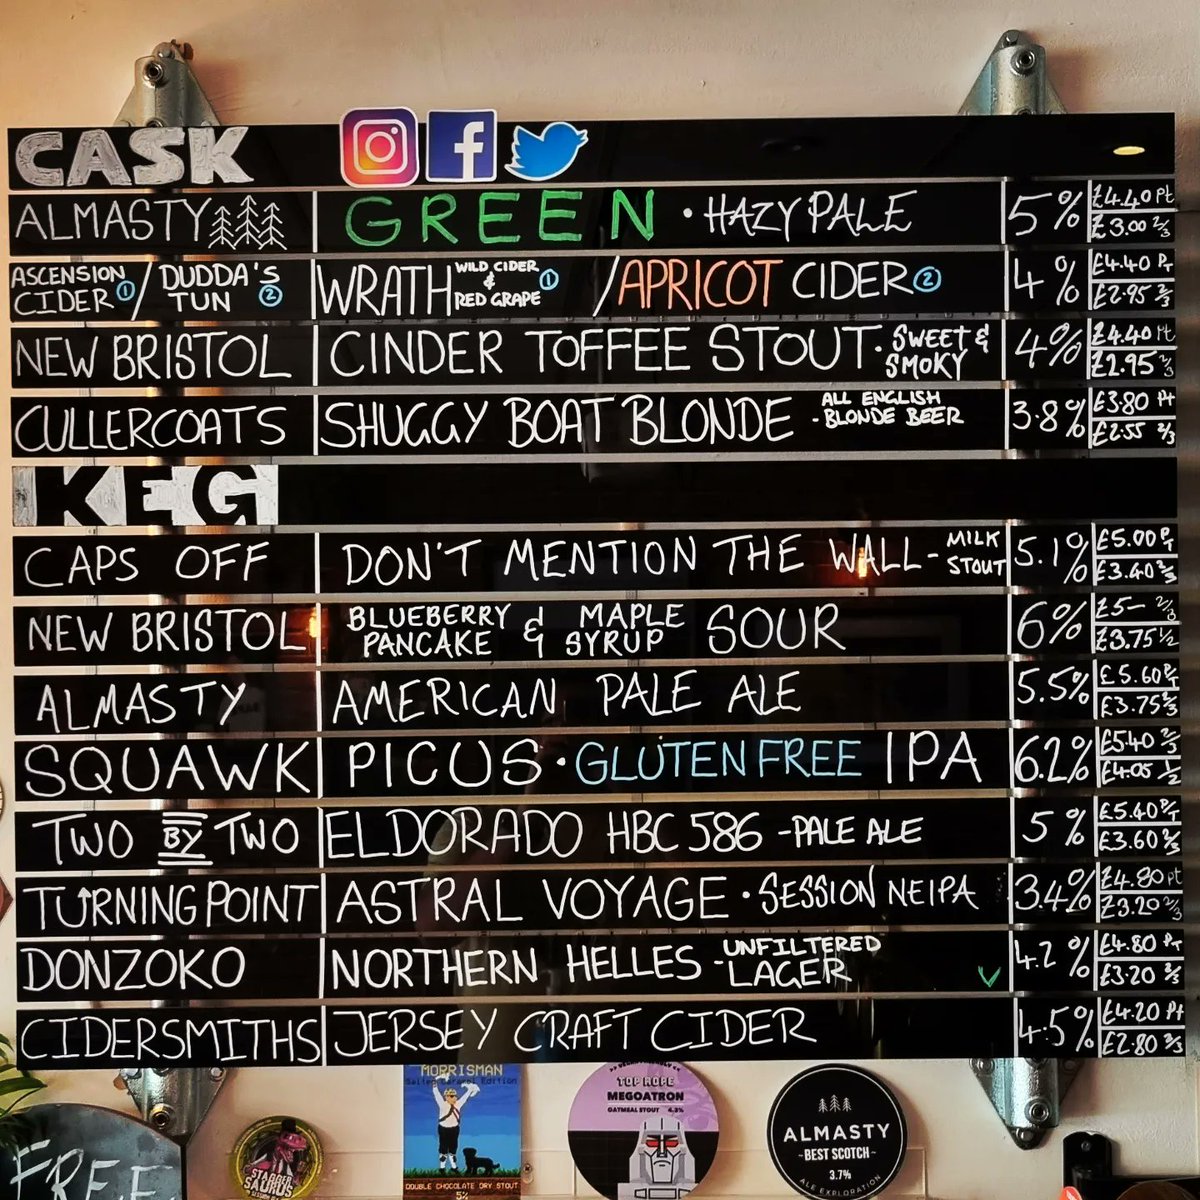 CASK
ALMASTY GREEN · HAZY PALE 5% £4.40 Pt £3.00 2/3
ASCENSION CIDER ① / DUDDA'S TUN ② WRATH WILD CIDER & RED GRAPE ① / APRICOT CIDER ② 4% £4.40 PT £2.95 2/3
NEW BRISTOL CINDER TOFFEE STOUT · SWEET & SMOKY 4% £4.40 Pt £2.95 2/3
CULLERCOATS SHUGGY BOAT BLONDE - ALL ENGLISH BLONDE BEER 3.8% £3.80 Pt £2.55 2/3
KEG
CAPS OFF DON'T MENTION THE WALL - MILK STOUT 5.1% £5.00 PT £3.40 2/3
NEW BRISTOL BLUEBERRY PANCAKE & MAPLE SYRUP SOUR 6% £5- 2/3 £3.75 1/2
ALMASTY AMERICAN PALE ALE 5.5% £5.60 PT £3.75 2/3
SQUAWK PICUS · GLUTEN FREE IPA 6.2% £5.40 2/3 £4.05 1/2
TWO BY TWO ELDORADO HBC 586 - PALE ALE 5% £5.40 PT £3.60 2/3
TURNING POINT ASTRAL VOYAGE · SESSION NEIPA 3.4% £4.80 Pt £3.20 2/3
DONZOKO NORTHERN HELLES - UNFILTERED LAGER V 4.2% £4.80 PT £3.20 2/3
CIDERSMITHS JERSEY CRAFT CIDER 4.5% £4.20 Pt £2.80 2/3
FREE
STAGGER SAURUS
MORRISMAN
Salted Caramel Edition
DOUBLE CHOCOLATE DRY STOUT
5%
TOP ROPE
MEGOATRON
OATMEAL STOUT 4.3%
ALMASTY
~BEST SCOTCH~
3.7%
ALE EXPLORATION